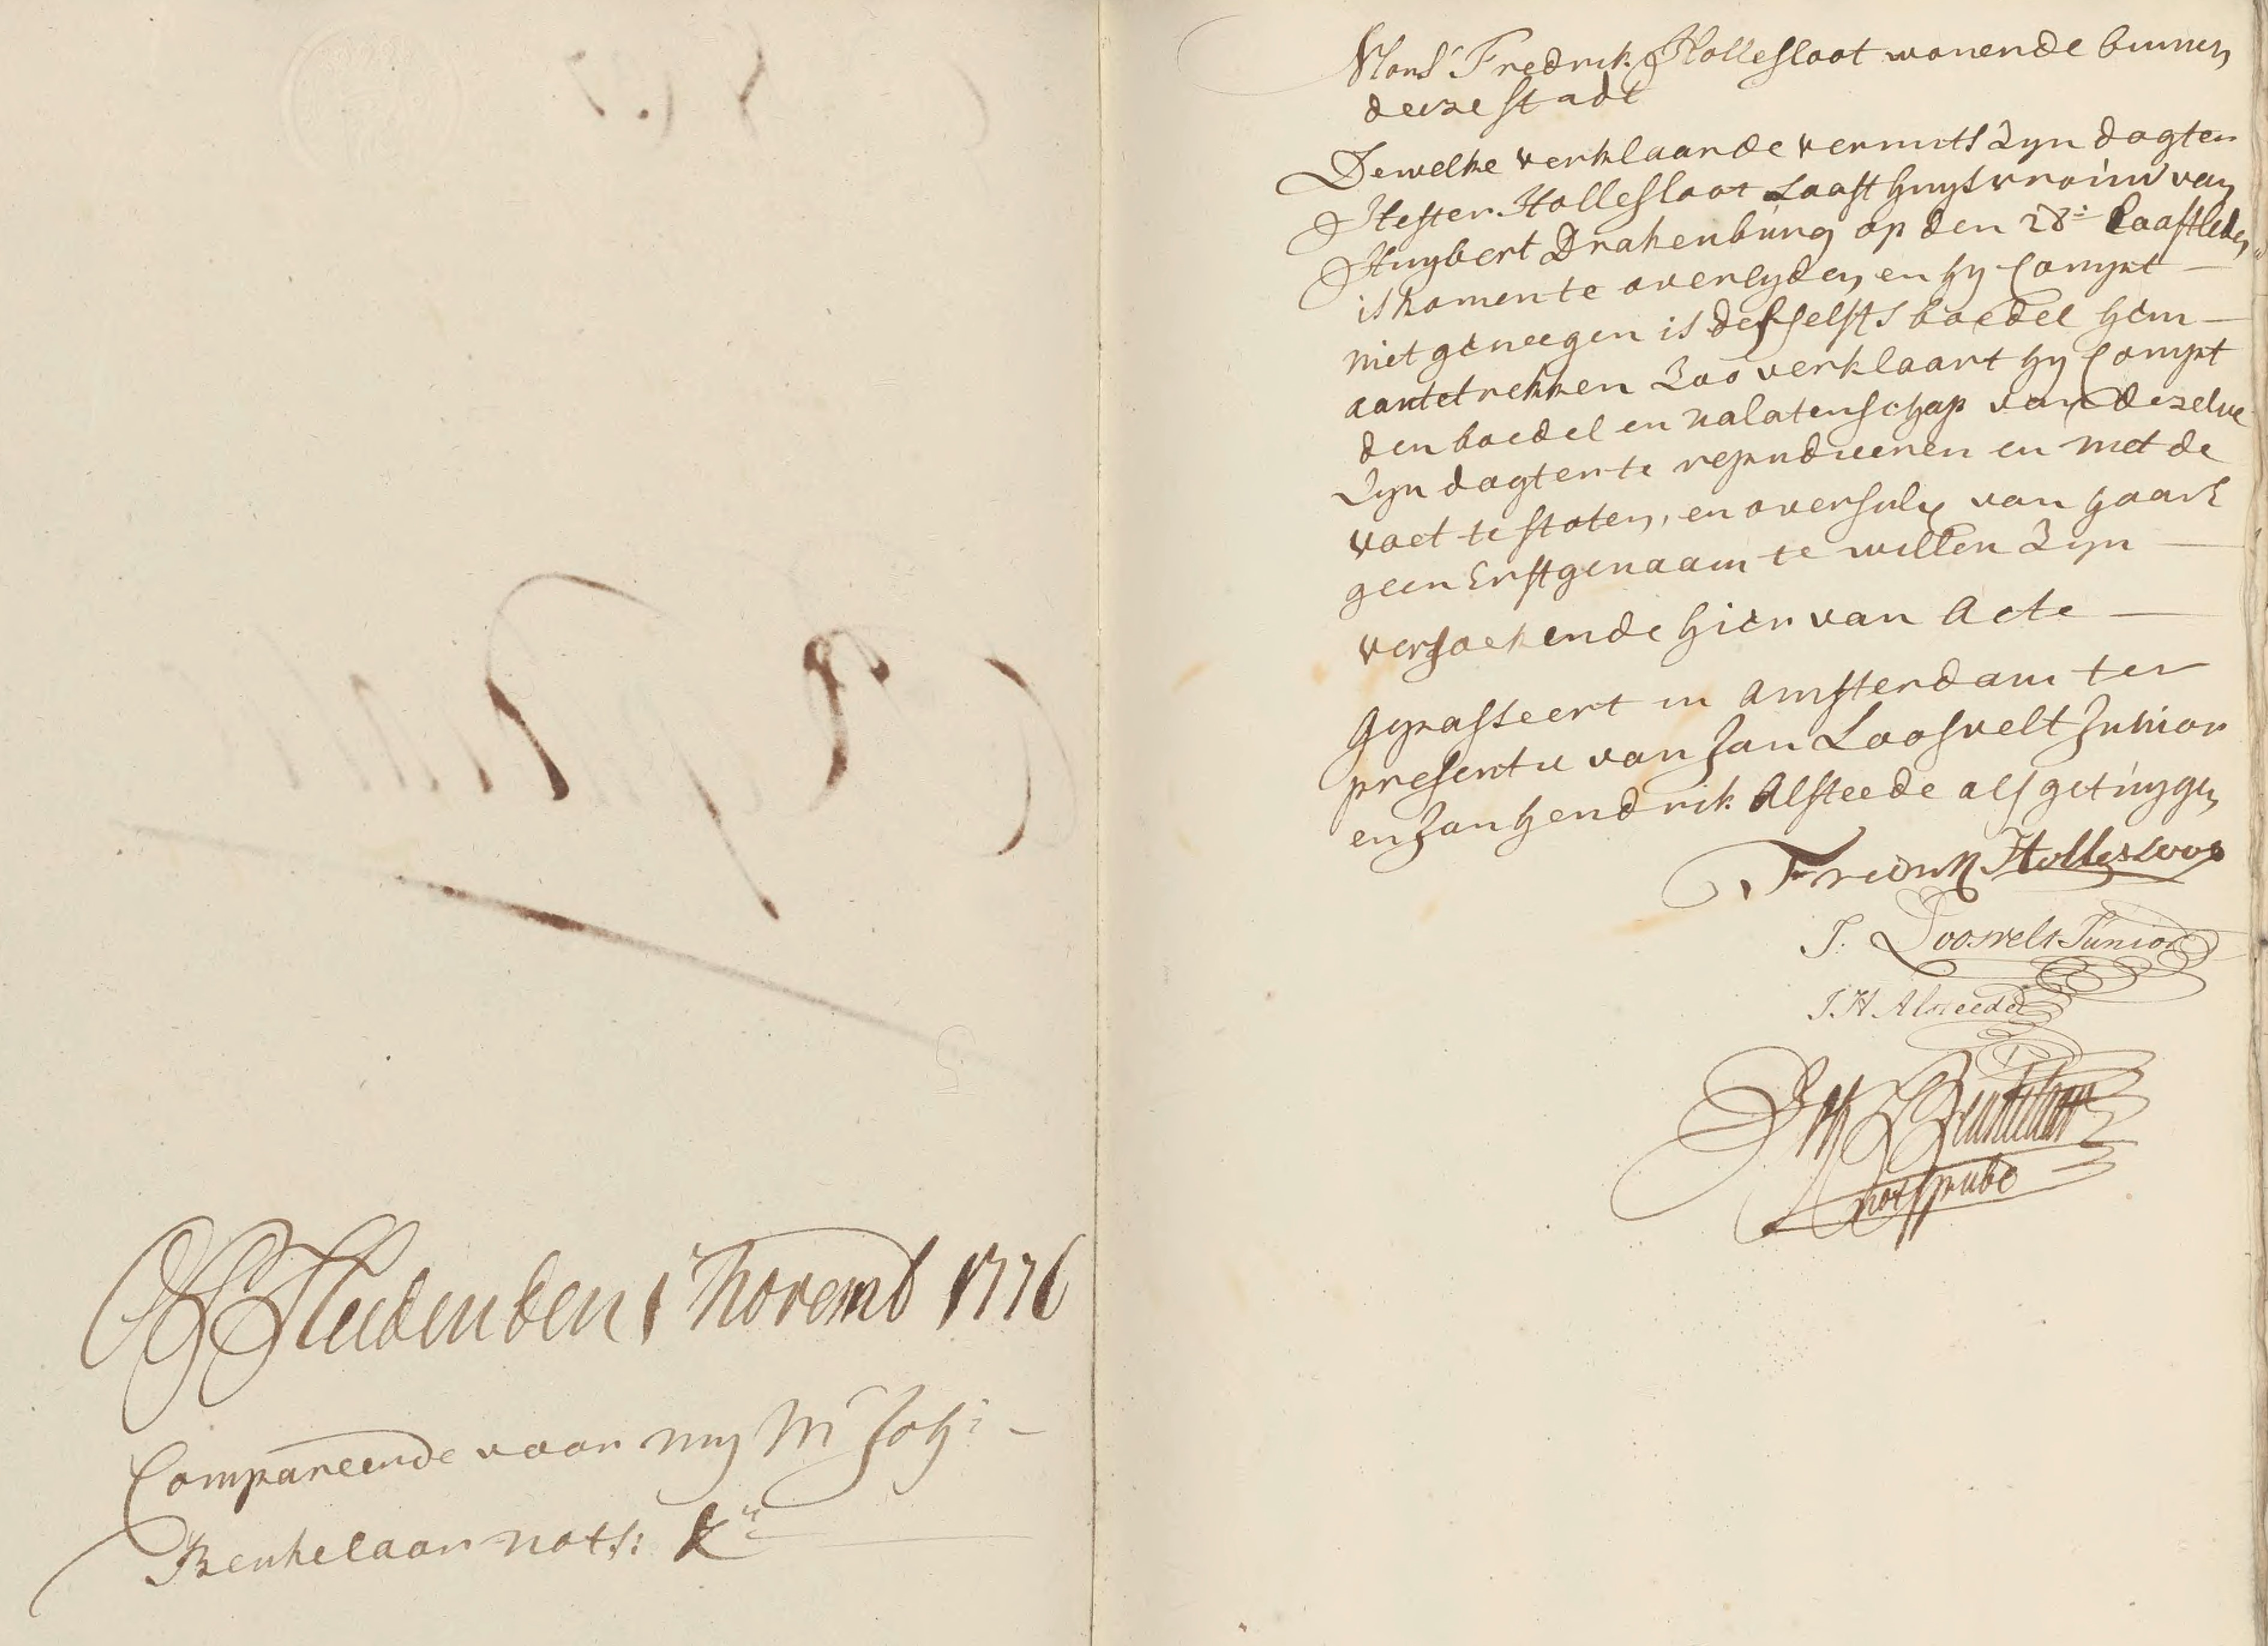 Op Heeden den 1 Novemb 1776
Compareerde voor my Mr Joh:
Beukelaar nots: &c
Mons.r Fredrik Hollesloot wonende binnen
deeze stadt
Dewelke verklaarde vermits Zyn dogter
Hester Hollesloot Laast huysvrouw van
Huybert Drakenburg op den 28: Laastleden
is komen te overlyden, en hy Compt
niet geneegen is desselfs boedel hem
aantetrekken Zoo verklaart hy Compt
den boedel en nalatenschap van dezelve
Zyn dogter te repudieeren en met de
voet te stoten, en oversulx van haar
geen Erfgenaam te willen Zyn
versoekende hier van Acte
Gepasseert in Amsterdam ter
presentie van Jan Loosvelt Junior
en Jan Hendrik Alsteede als getuygen
Fredrik Hollesloot
J: Loosvelt Junior
J. H. Alsteede
Beukelaar
not: pub: